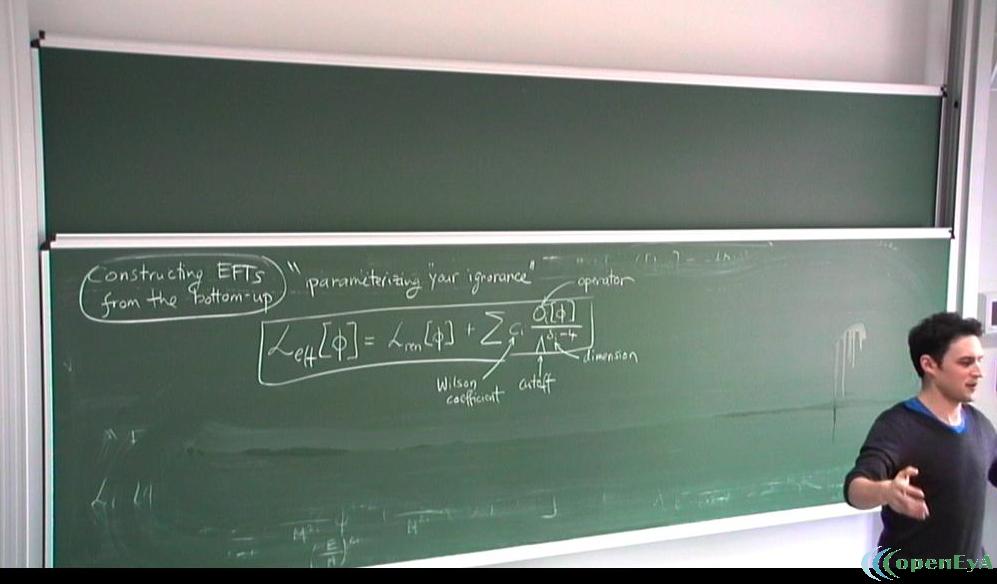 Constructing EFTs
from the bottom-up
"parameterizing your ignorance"
operator
ℒeff[ϕ] = ℒren[ϕ] + ∑ cᵢ Oᵢ[ϕ] / Λ^(δᵢ-4)
dimension
Wilson
coefficient
cutoff
openEyA